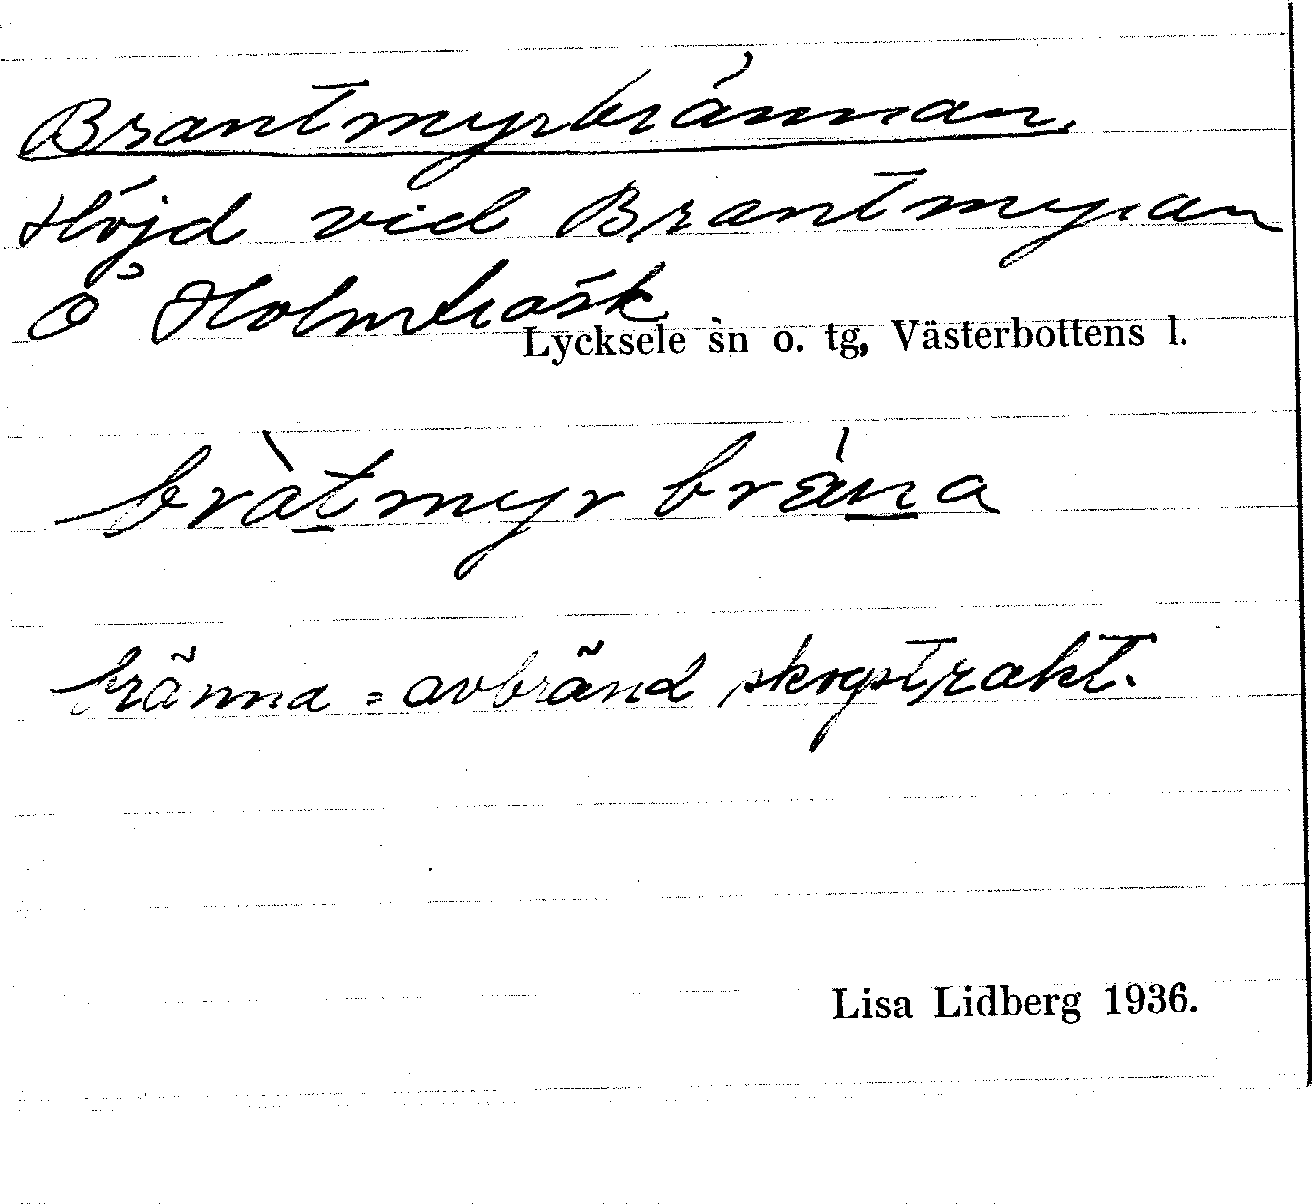 Brantmyrbrännan.
Höjd vid Brantmyran
Ö Holmträsk
Lycksele sn o. tg, Västerbottens l.
bràtmyr brä́na
bränna = avbränd skogstrakt.
Lisa Lidberg 1936.